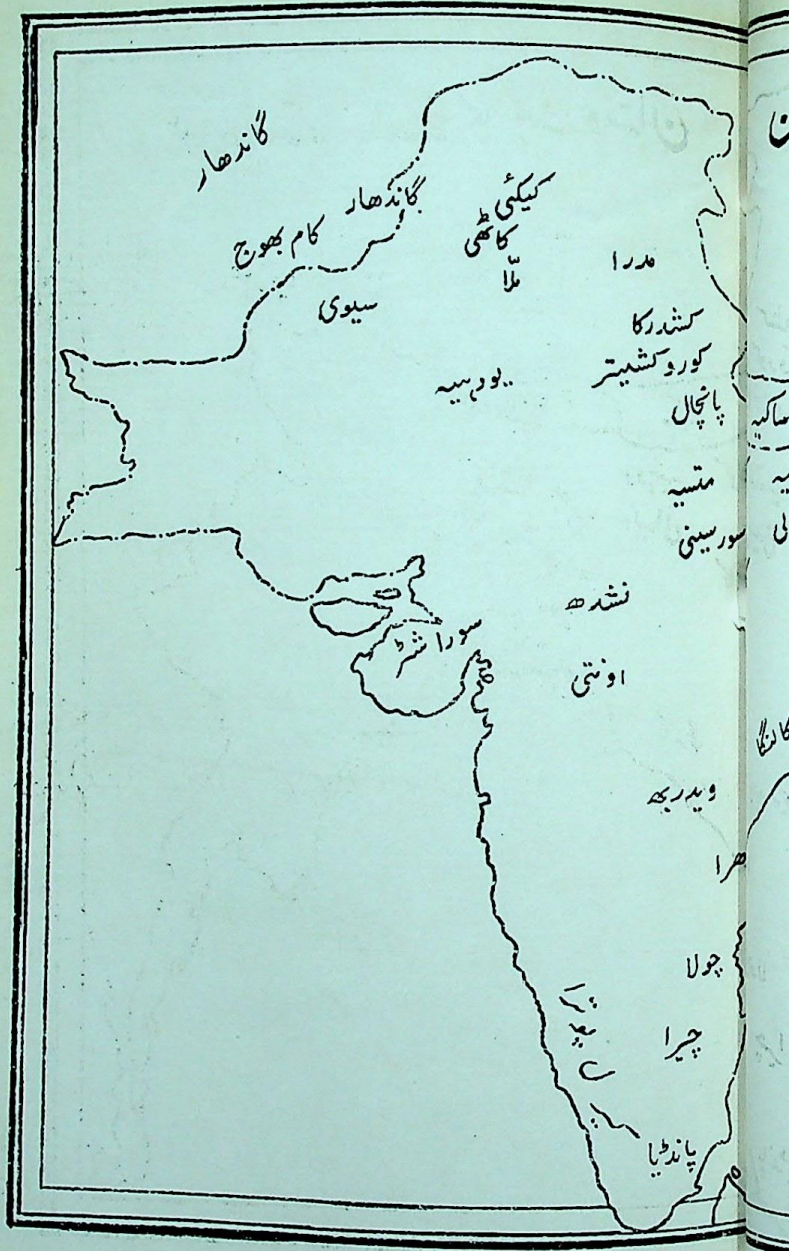 گاندھار
گاندھار
کیکئی
کام بھوج
کاٹھی
ملّا
مدرا
سیوی
کشدرکا
کوروکشیتر
یودہیہ
پانچال
متسیہ
سورسینی
نشدھ
سوراشٹر
اونتی
کالنگا
ویدربھ
ھرا
چولا
چیرا
پانڈیا